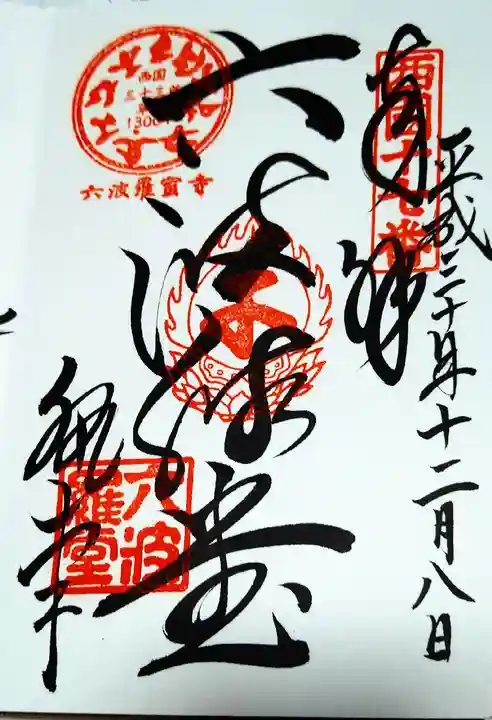 平成三十年十二月八日
奉拝
西国十七番
六波羅堂
西国
三十三所
1300
六波羅蜜寺
六波
羅堂